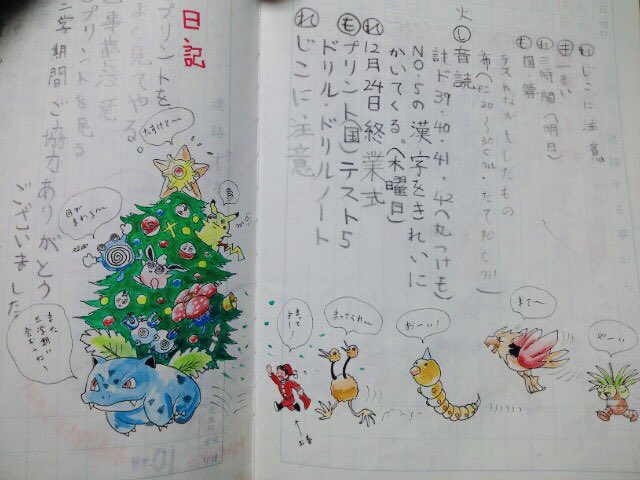 れ じこに注意
き 一まい
れ 三時間(明日)
も 国・算
テストなおしし
火
し 音読
計ド39・40・41・42(丸つけも)
NO.5の漢字をきれいに
かいてくる。(木曜日)
れ 12月24日終業式
も プリント(国)テスト5
ドリル・ドリルノート
れ じこに注意
やーい
まて〜
おーい!
まってくれ〜
まってよー
日記
プリントを
よく見てやる
事故に注意
プリントを見る
二学期間ご協力ありがとう
ございました
たすけて〜
目が
まわる〜
また
三学期に
会おーぜー